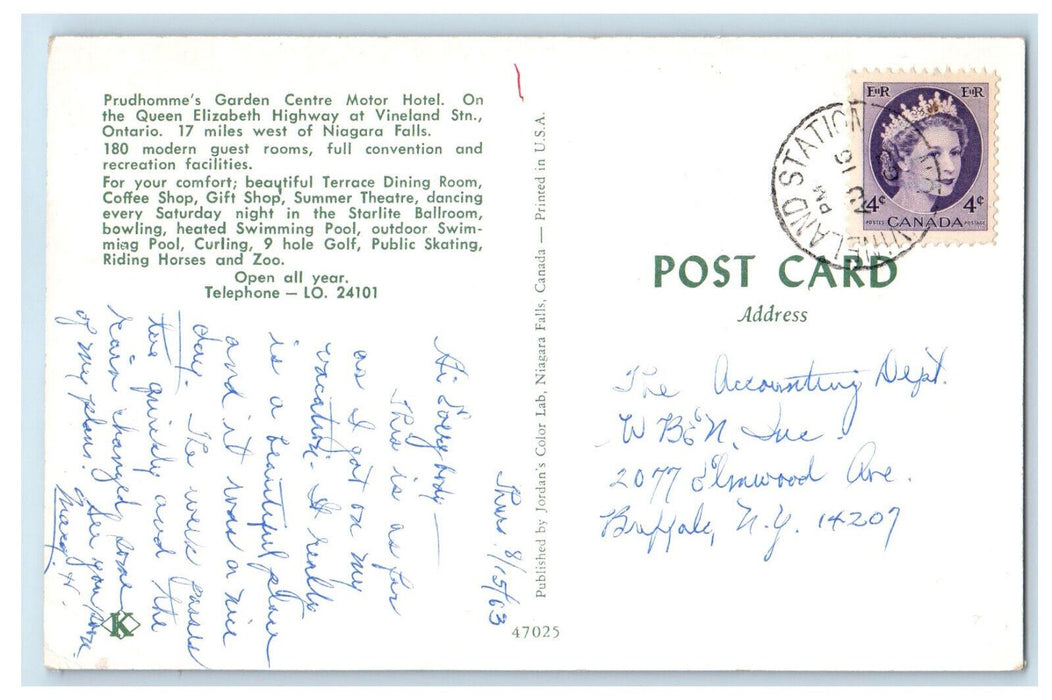 Prudhomme's Garden Centre Motor Hotel. On
the Queen Elizabeth Highway at Vineland Stn.,
Ontario. 17 miles west of Niagara Falls.
180 modern guest rooms, full convention and
recreation facilities.
For your comfort; beautiful Terrace Dining Room,
Coffee Shop, Gift Shop, Summer Theatre, dancing
every Saturday night in the Starlite Ballroom,
bowling, heated Swimming Pool, outdoor Swim-
ming Pool, Curling, 9 hole Golf, Public Skating,
Riding Horses and Zoo.
Open all year.
Telephone — LO. 24101
Thurs 8/15/63
Hi Everybody —
This is as far
as I got on my
vacation. It really
is a beautiful place
and it was a nice
day. The week passes
too quickly and the
rain changed some
of my plans. See you soon.
H.
K
Published by Jordan's Color Lab, Niagara Falls, Canada — Printed in U.S.A.
47025
E II R
E II R
4¢
4¢
POSTES CANADA POSTAGE
VINELAND STATION
PM
POST CARD
Address
The Accounting Dept.
WBEN, Inc.
2077 Elmwood Ave.
Buffalo, N.Y. 14207